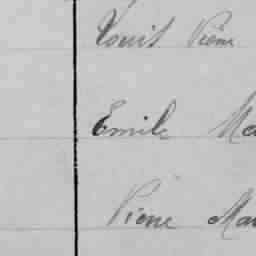 Louis Pierre
Emile Ma
Pierre Mar